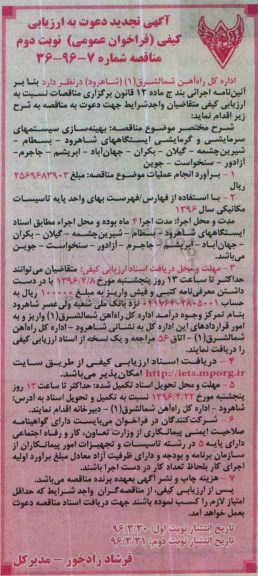 آگهی تجدید دعوت به ارزیابی
کیفی (فراخوان عمومی) نوبت دوم
مناقصه شماره ۷-۹۶-۳۶
اداره کل راه‌آهن شمالشرق(۱) (شاهرود) درنظر دارد بنا بر
آئین‌نامه اجرائی بند ج ماده ۱۲ قانون برگزاری مناقصات نسبت به
ارزیابی کیفی متقاضیان واجدشرایط جهت دعوت به مناقصه به شرح
زیر اقدام نماید:
شرح مختصر موضوع مناقصه: بهینه‌سازی سیستمهای
سرمایشی و گرمایشی ایستگاههای شاهرود - بسطام -
شیرین‌چشمه - گیلان - بکران - جهان‌آباد - ابریشم - جاجرم-
آزادور - سنخواست - جوین
۱ - برآورد انجام عملیات موضوع مناقصه: مبلغ ۲۵۶۹۶۸۳۹۰۳
ریال
۲ - با استفاده از فهارس/فهرست بهای واحد پایه تاسیسات
مکانیکی سال ۱۳۹۶
مدت و محل اجرا: مدت اجرا ۴ ماه بوده و محل اجراء مطابق اسناد
ایستگاههای شاهرود - بسطام - شیرین‌چشمه - گیلان - بکران
- جهان‌آباد - ابریشم - جاجرم - آزادور - سنخواست - جوین
می‌باشد.
۳ - مهلت و محل دریافت اسناد ارزیابی کیفی: متقاضیان می‌توانند
حداکثر تا ساعت ۱۳ روز پنجشنبه مورخ ۱۳۹۶/۴/۸ با در دست
داشتن معرفی‌نامه کتبی و فیش واریز به مبلغ ۱۰۰۰۰۰ ریال به
حساب نزد بانک ملی شعبه ولی‌عصر شاهرود
بنام تمرکز وجوه درآمد اداره کل راه‌آهن شمالشرق(۱) واریز و به
امور قراردادهای این اداره کل به نشانی شاهرود - اداره کل راه‌آهن
شمالشرق(۱) - اتاق ۵۶ مراجعه و یک نسخه از اسناد ارزیابی کیفی
را دریافت نمایند.
۴ - دریافت اسناد ارزیابی کیفی از طریق سایت
http://iets.mporg.ir امکان پذیر می‌باشد.
۵ - مهلت و محل تحویل اسناد تکمیل شده: حداکثر تا ساعت ۱۳ روز
پنجشنبه مورخ ۱۳۹۶/۴/۲۲ نسبت به تکمیل و تحویل اسناد به آدرس:
شاهرود - اداره کل راه‌آهن شمالشرق(۱) - دبیرخانه اقدام نمایند.
۶ - شرکت‌کنندگان در فراخوان می‌بایست دارای گواهینامه
صلاحیت ایمنی پیمانکاری از وزارت تعاون، کار و رفاه اجتماعی
دارای پایه ۵ در رشته تاسیسات و تجهیزات امور پیمانکاران از
سازمان برنامه و بودجه و دارای ظرفیت آزاد معادل مبلغ برآورد اولیه
اجرای کار بلحاظ تعداد کار در دست اجرا باشند.
۷ - هزینه چاپ و نشر آگهی بعهده برنده مناقصه می‌باشد.
پس از ارزیابی کیفی، از مناقصه‌گران واجد شرایط که حداقل
امتیاز لازم را کسب نموده باشند جهت دریافت اسناد مناقصه دعوت
بعمل خواهد آمد.
تاریخ انتشار نوبت اول: ۹۶/۳/۳۰
تاریخ انتشار نوبت دوم: ۹۶/۳/۳۱
فرشاد زادخور - مدیرکل